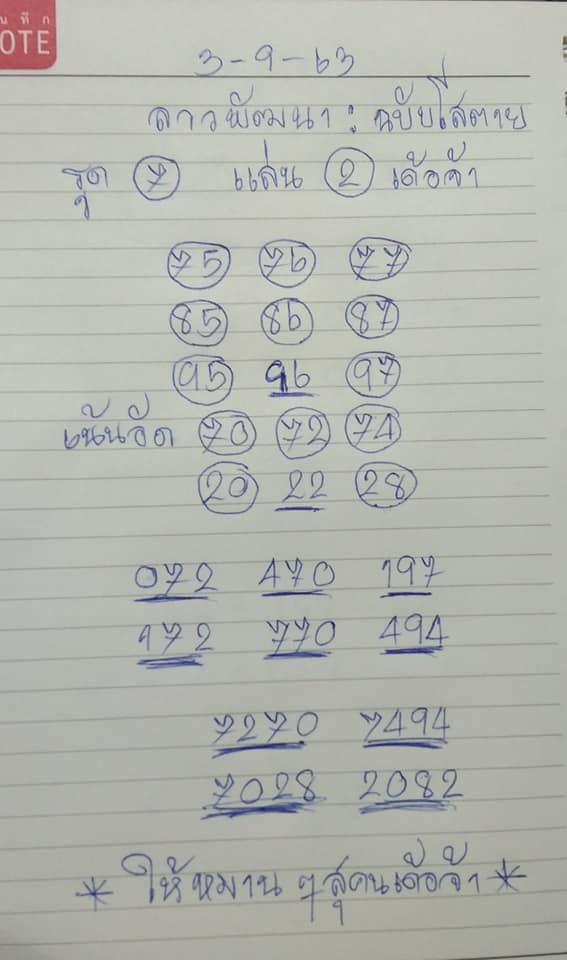 นทึก
OTE
3-9-63
ลาวพัฒนา : ฉบับใส่ตาย
รูด 7 แล่น 2 เด้อจ้า
75 76 77
85 86 87
95 96 97
เน้นอัด 70 72 74
20 22 28
072 470 197
172 770 494
7270 7494
7028 2082
* ให้หมาน ๆ สุคนเด้อจ้า *